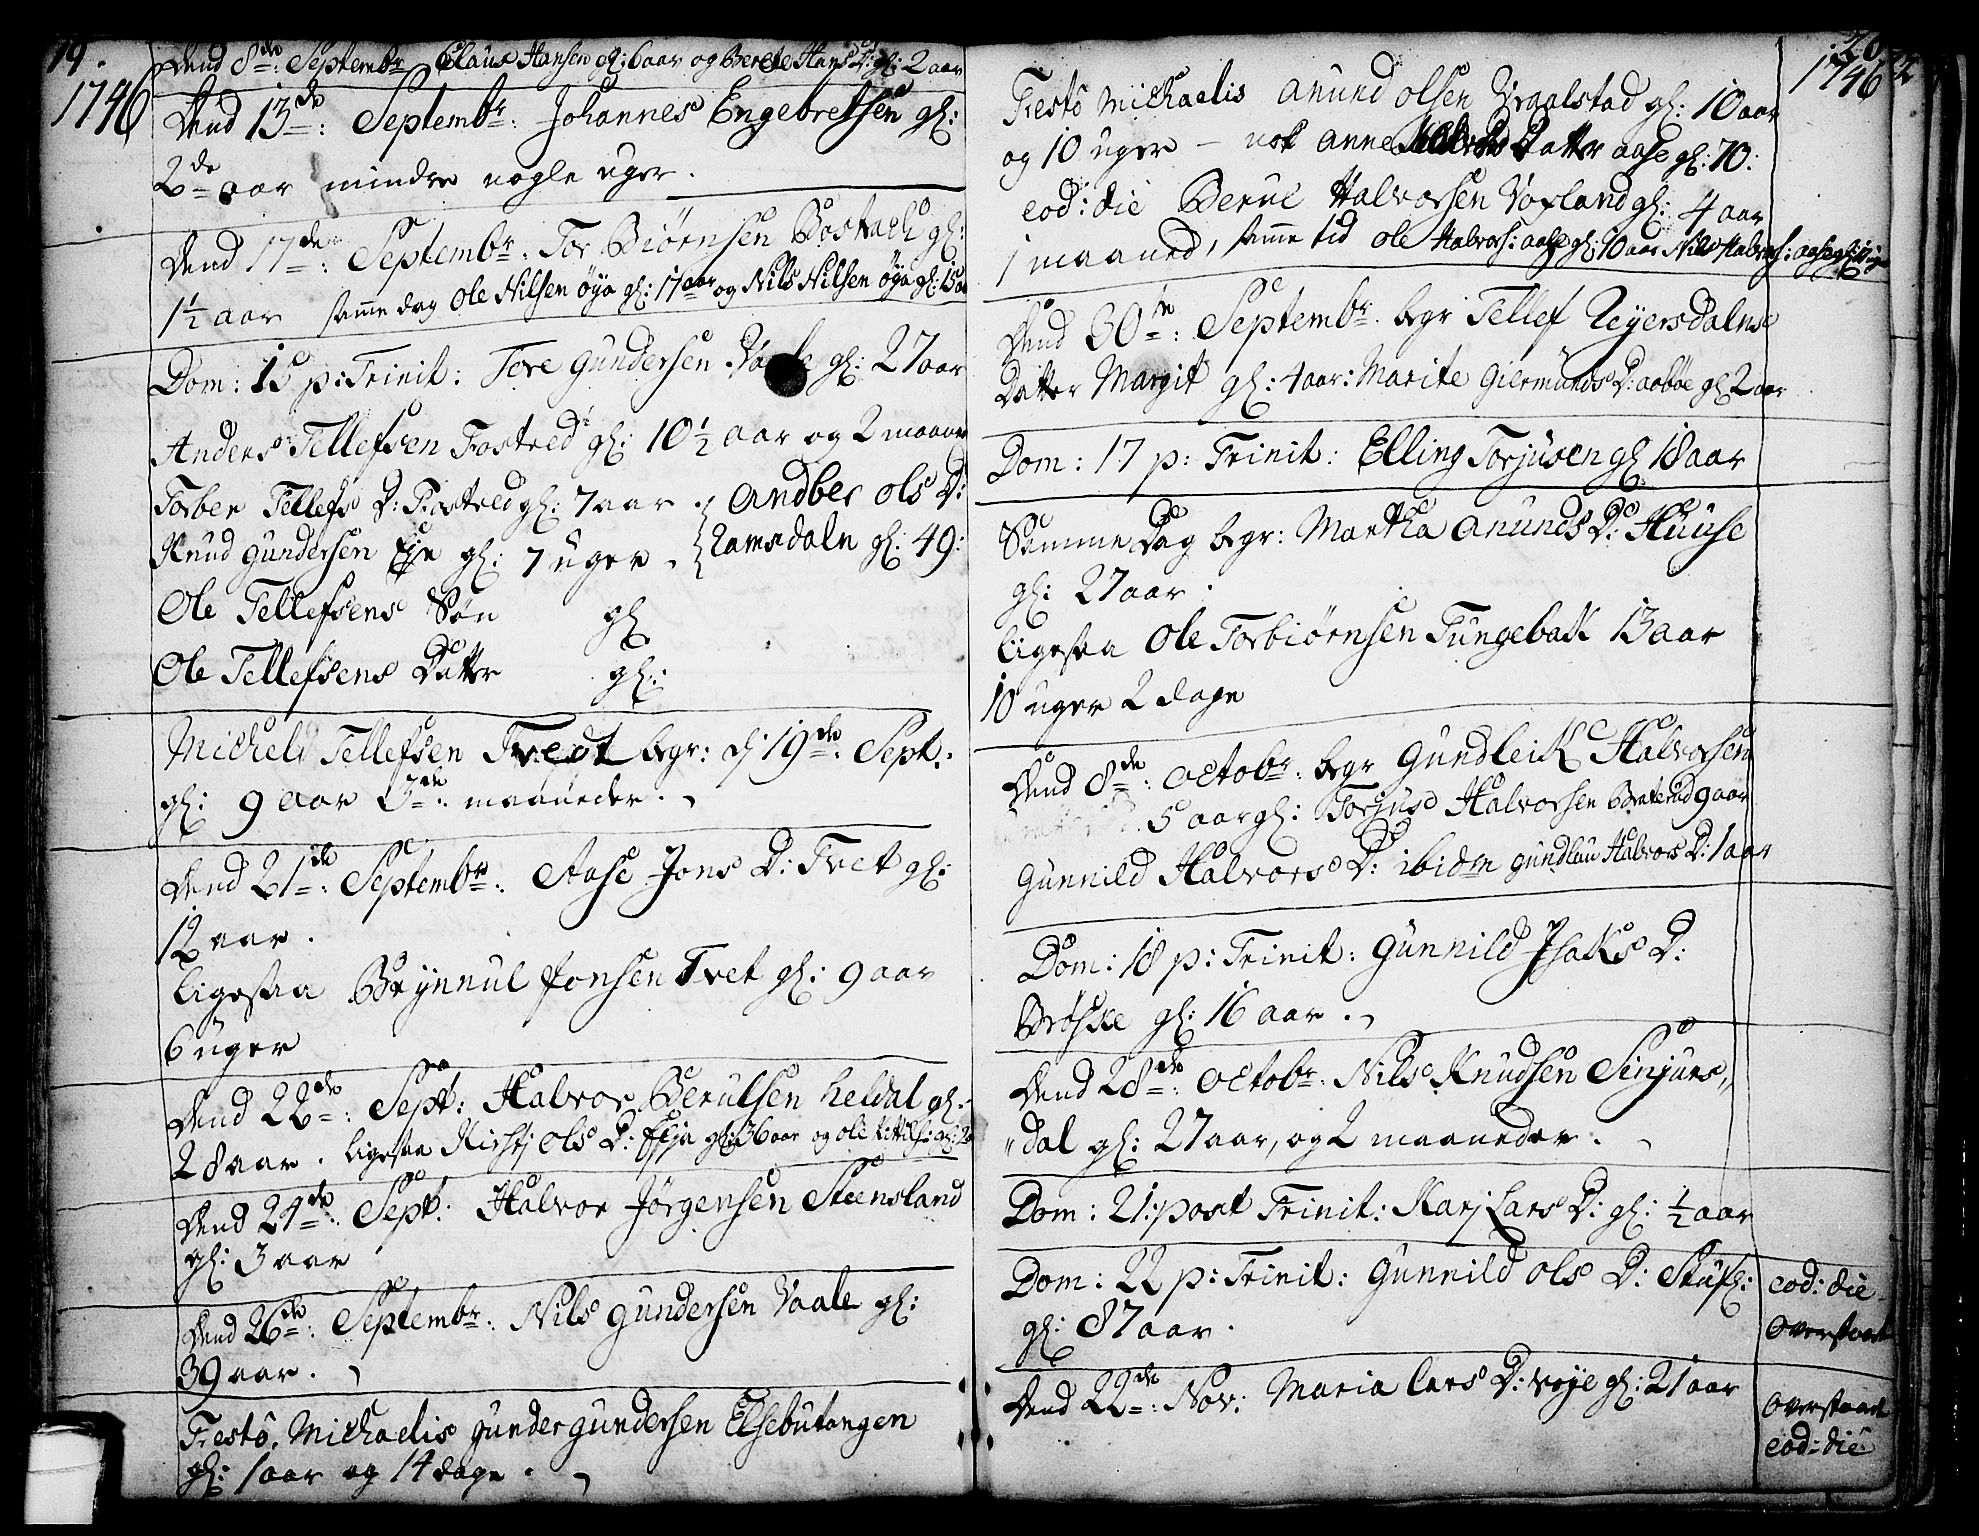 19.
1746
Dend 8de: Septembr Claus Hansen gl: 6 aar og Berete Hans D: gl: 2 aar
Dend 13de: Septembr: Johannes Engebretsen gl:
2de aar mindre nogle uger.
Dend 17de: Septembr. Tor Biørnsen Bostrach gl:
1½ aar samme dag Ole Nilsen øya gl: 17 aar og Nils Nilsen øya gl: 15 aar
Dom: 15 p: Trinit: Tore Gundersen gl: 27 aar
Anders Tellefsen Fostved gl: 10½ aar og 2 maaned
Torber Tellefs D: Fostved gl: 7 aar. Andber Ols D:
Knud Gundersen Eje gl: 7 uger. Ramsdaln gl: 49:
Ole Tellefsens Søn gl:
Ole Tellefsens Datter gl:
Michel Tellefsen Tvedt begr: d: 19de: Sept:
gl: 9 aar 3de: maaneder.
Dend 21de: Septembr: Aase Jons D: Tvet gl:
12 aar.
ligesaa Brynnul Jonsen Tvet gl: 9 aar
6 uger
Dend 22de: Sept: Halvor Berulsen heldal gl:
28 aar. ligesaa Kirstj Ols D: Esja gl: 36 aar og ole
Dend 24de: Sept: Halvor Jørgensen Steensland
gl: 3 aar
Dend 26de: Septembr: Nils Gundersen Vaale gl:
39 aar.
Festo. Michaelis Gunder Gundersen Elsebutangen
gl: 1 aar og 14 dage.
20
1746
Festo Michaelis Anund Olsen Vraalstad gl: 10 aar
og 10 uger – nok Anne Datter aase gl: 70:
eod: die Berul Halvorsen Voxland gl: 4 aar
1 maaned, samme tid Ole Halvors: aase gl: 10 aar Nils Halvors: aase gl:
Dend 30te: Septembr. begr Tellef Reyersdalns
Datter Margit gl: 4 aar: Marite Giermunds D: aabøe gl 2 aar
Dom: 17 p: Trinit: Elling Torjusen gl 18 aar
Samme Dag begr: Martha Anunds D: Huuse
gl: 27 aar.
ligesaa Ole Torbiørnsen Tungebatk 13 aar
10 uger 2 dage
Dend 8de: Octobr: begr Gundleik Halvorsen
5 aar gl: Torjus Halvorsen Braterud 9 aar
Gunnild Halvors D: ibidm Gundlau Halvors D: 1 aar
Dom: 18 p: Trinit: Gunnild Isaks D:
Brøske gl: 16 aar.
Dend 28de: Octobr: Nils Knudsen Sinjurs,,
,,dal gl: 27 aar, og 2 maaneder.
Dom: 21: post Trinit: Karj Lars D: gl: ½ aar
Dom: 22 p: Trinit: Gunnild Ols D: Stusl:
gl: 87 aar.
eod: die
Overstaaet
Dend 22de: Nov: Maria Lars D: vøje gl: 21 aar
Overstaaet
eod: die